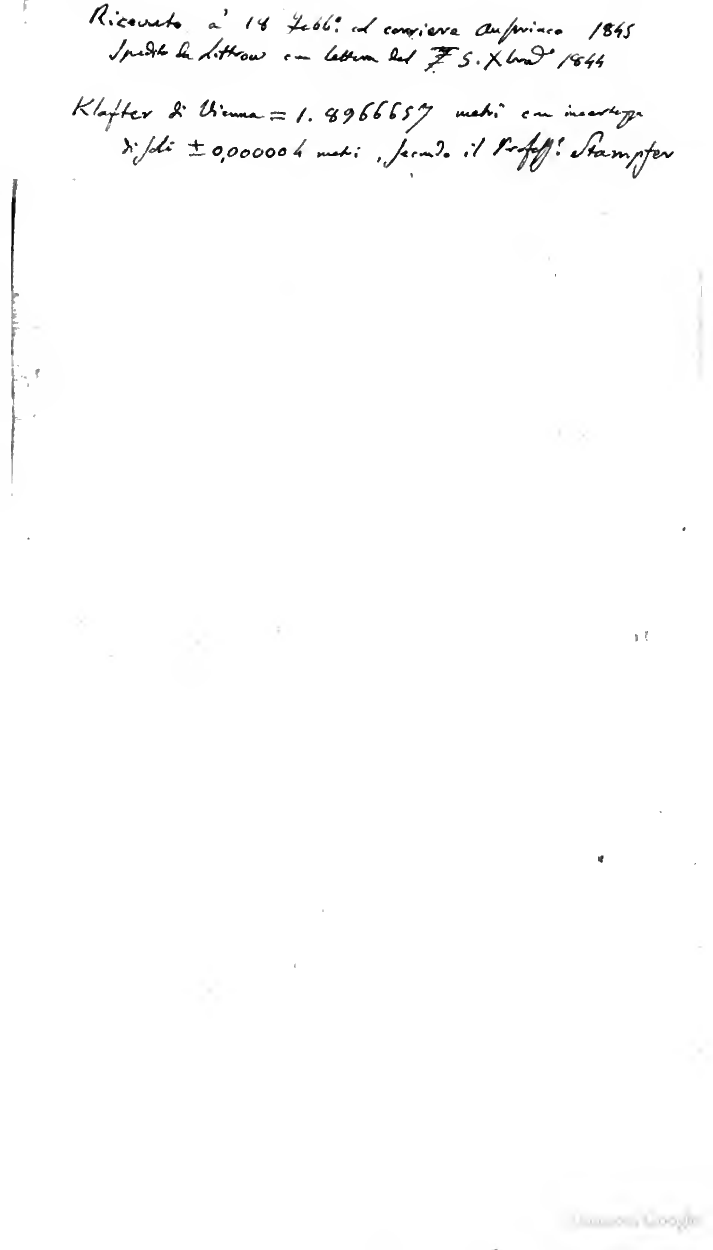 Ricevuto a' 18 Febb.º col corriere Austriaco 1845
Spedito da Littrow con lettera del 5. Xbre 1844
Klafter di Vienna = 1.8966657 metri con incertezza
di soli ± 0,000004 metri, secondo il Profess.e Stampfer
Google